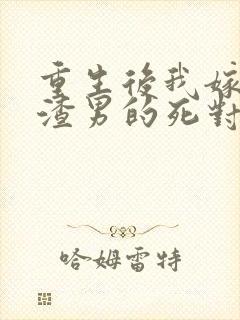 重生後我嫁
渣男的死對
哈姆雷特